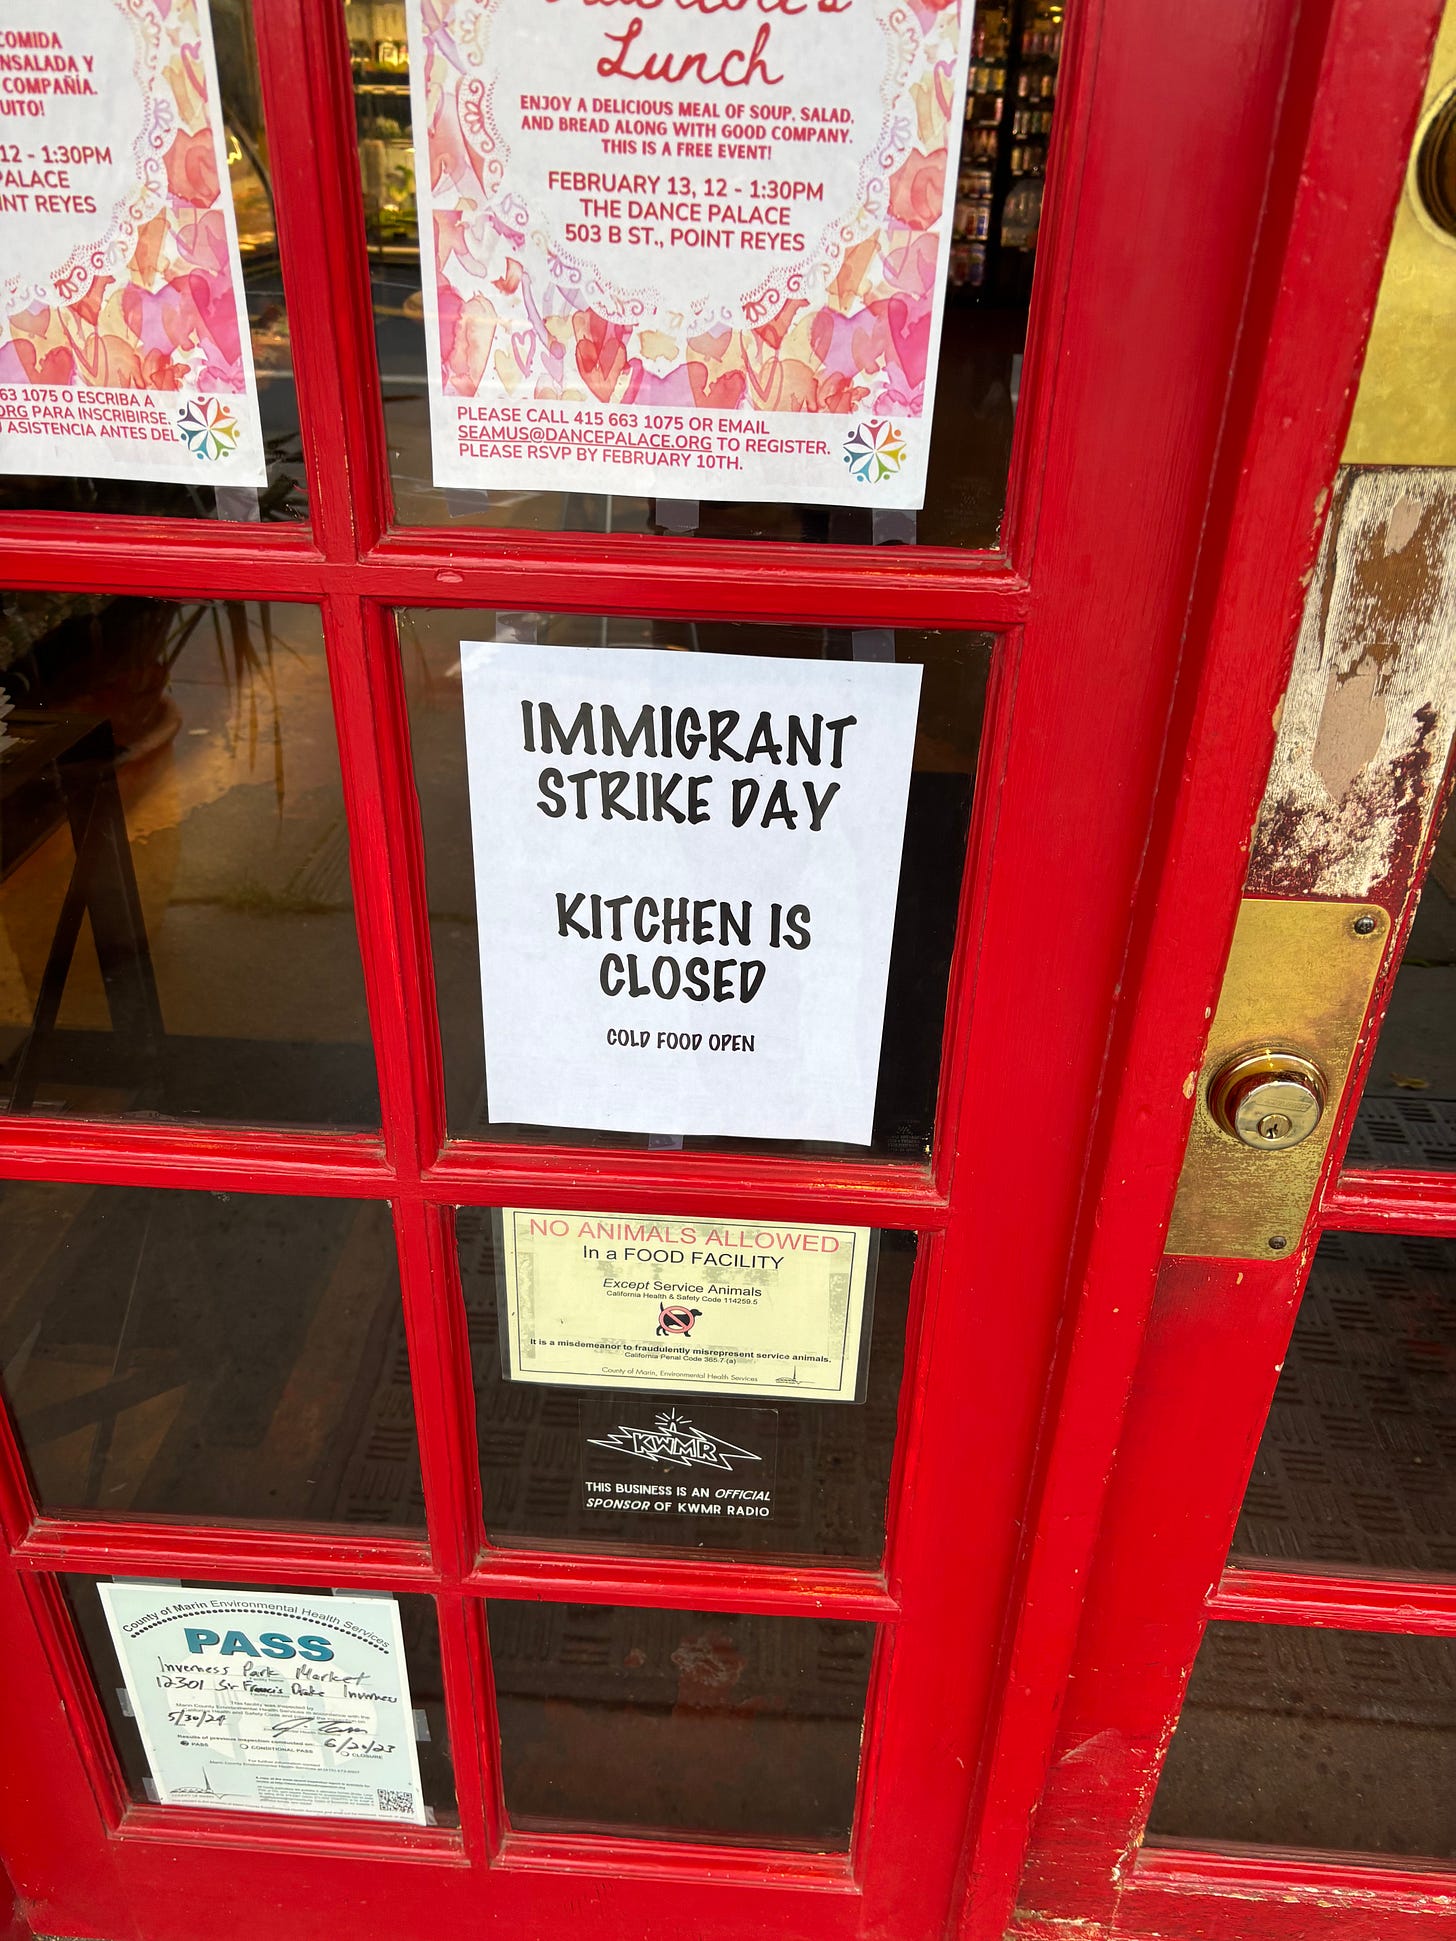 COMIDA
NSALADA Y
COMPAÑÍA.
UITO!
12 - 1:30PM
PALACE
INT REYES
63 1075 O ESCRIBA A
ORG PARA INSCRIBIRSE.
ASISTENCIA ANTES DEL
Lunch
ENJOY A DELICIOUS MEAL OF SOUP, SALAD,
AND BREAD ALONG WITH GOOD COMPANY.
THIS IS A FREE EVENT!
FEBRUARY 13, 12 - 1:30PM
THE DANCE PALACE
503 B ST., POINT REYES
PLEASE CALL 415 663 1075 OR EMAIL
SEAMUS@DANCEPALACE.ORG TO REGISTER.
PLEASE RSVP BY FEBRUARY 10TH.
IMMIGRANT
STRIKE DAY
KITCHEN IS
CLOSED
COLD FOOD OPEN
NO ANIMALS ALLOWED
In a FOOD FACILITY
Except Service Animals
California Health & Safety Code 114259.5
It is a misdemeanor to fraudulently misrepresent service animals.
California Penal Code 365.7 (a)
County of Marin, Environmental Health Services
KWMR
THIS BUSINESS IS AN OFFICIAL
SPONSOR OF KWMR RADIO
County of Marin Environmental Health Services
PASS
Inverness Park Market
12301 Sir Francis Drake Inverness
5/30/24
Results of previous inspection conducted on: 6/20/23
PASS CONDITIONAL PASS CLOSURE